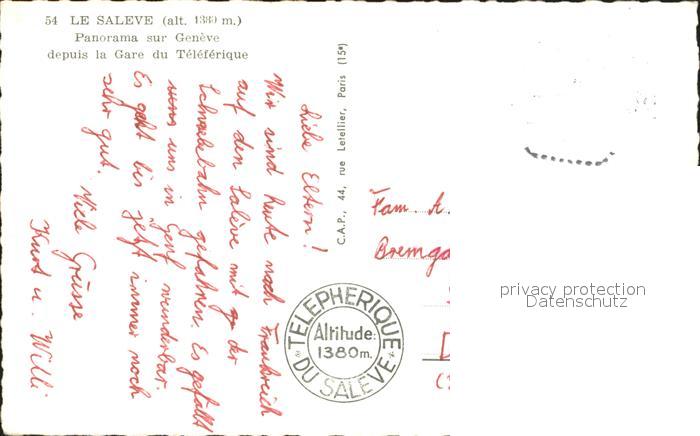 54 LE SALEVE (alt. 1380 m.)
Panorama sur Genève
depuis la Gare du Téléférique
Liebe Eltern!
Wir sind heute nach Frankreich
auf den Salève mit der
Schwebebahn gefahren. Es gefällt
uns in Genf wunderbar.
Es geht bis jetzt immer noch
sehr gut. Viele Grüsse
Kurt u. Willi
C.A.P., 44, rue Letellier, Paris (15e)
Fam. A.
Bremga
TELEPHERIQUE
Altitude:
1380m.
DU SALEVE
privacy protection
Datenschutz